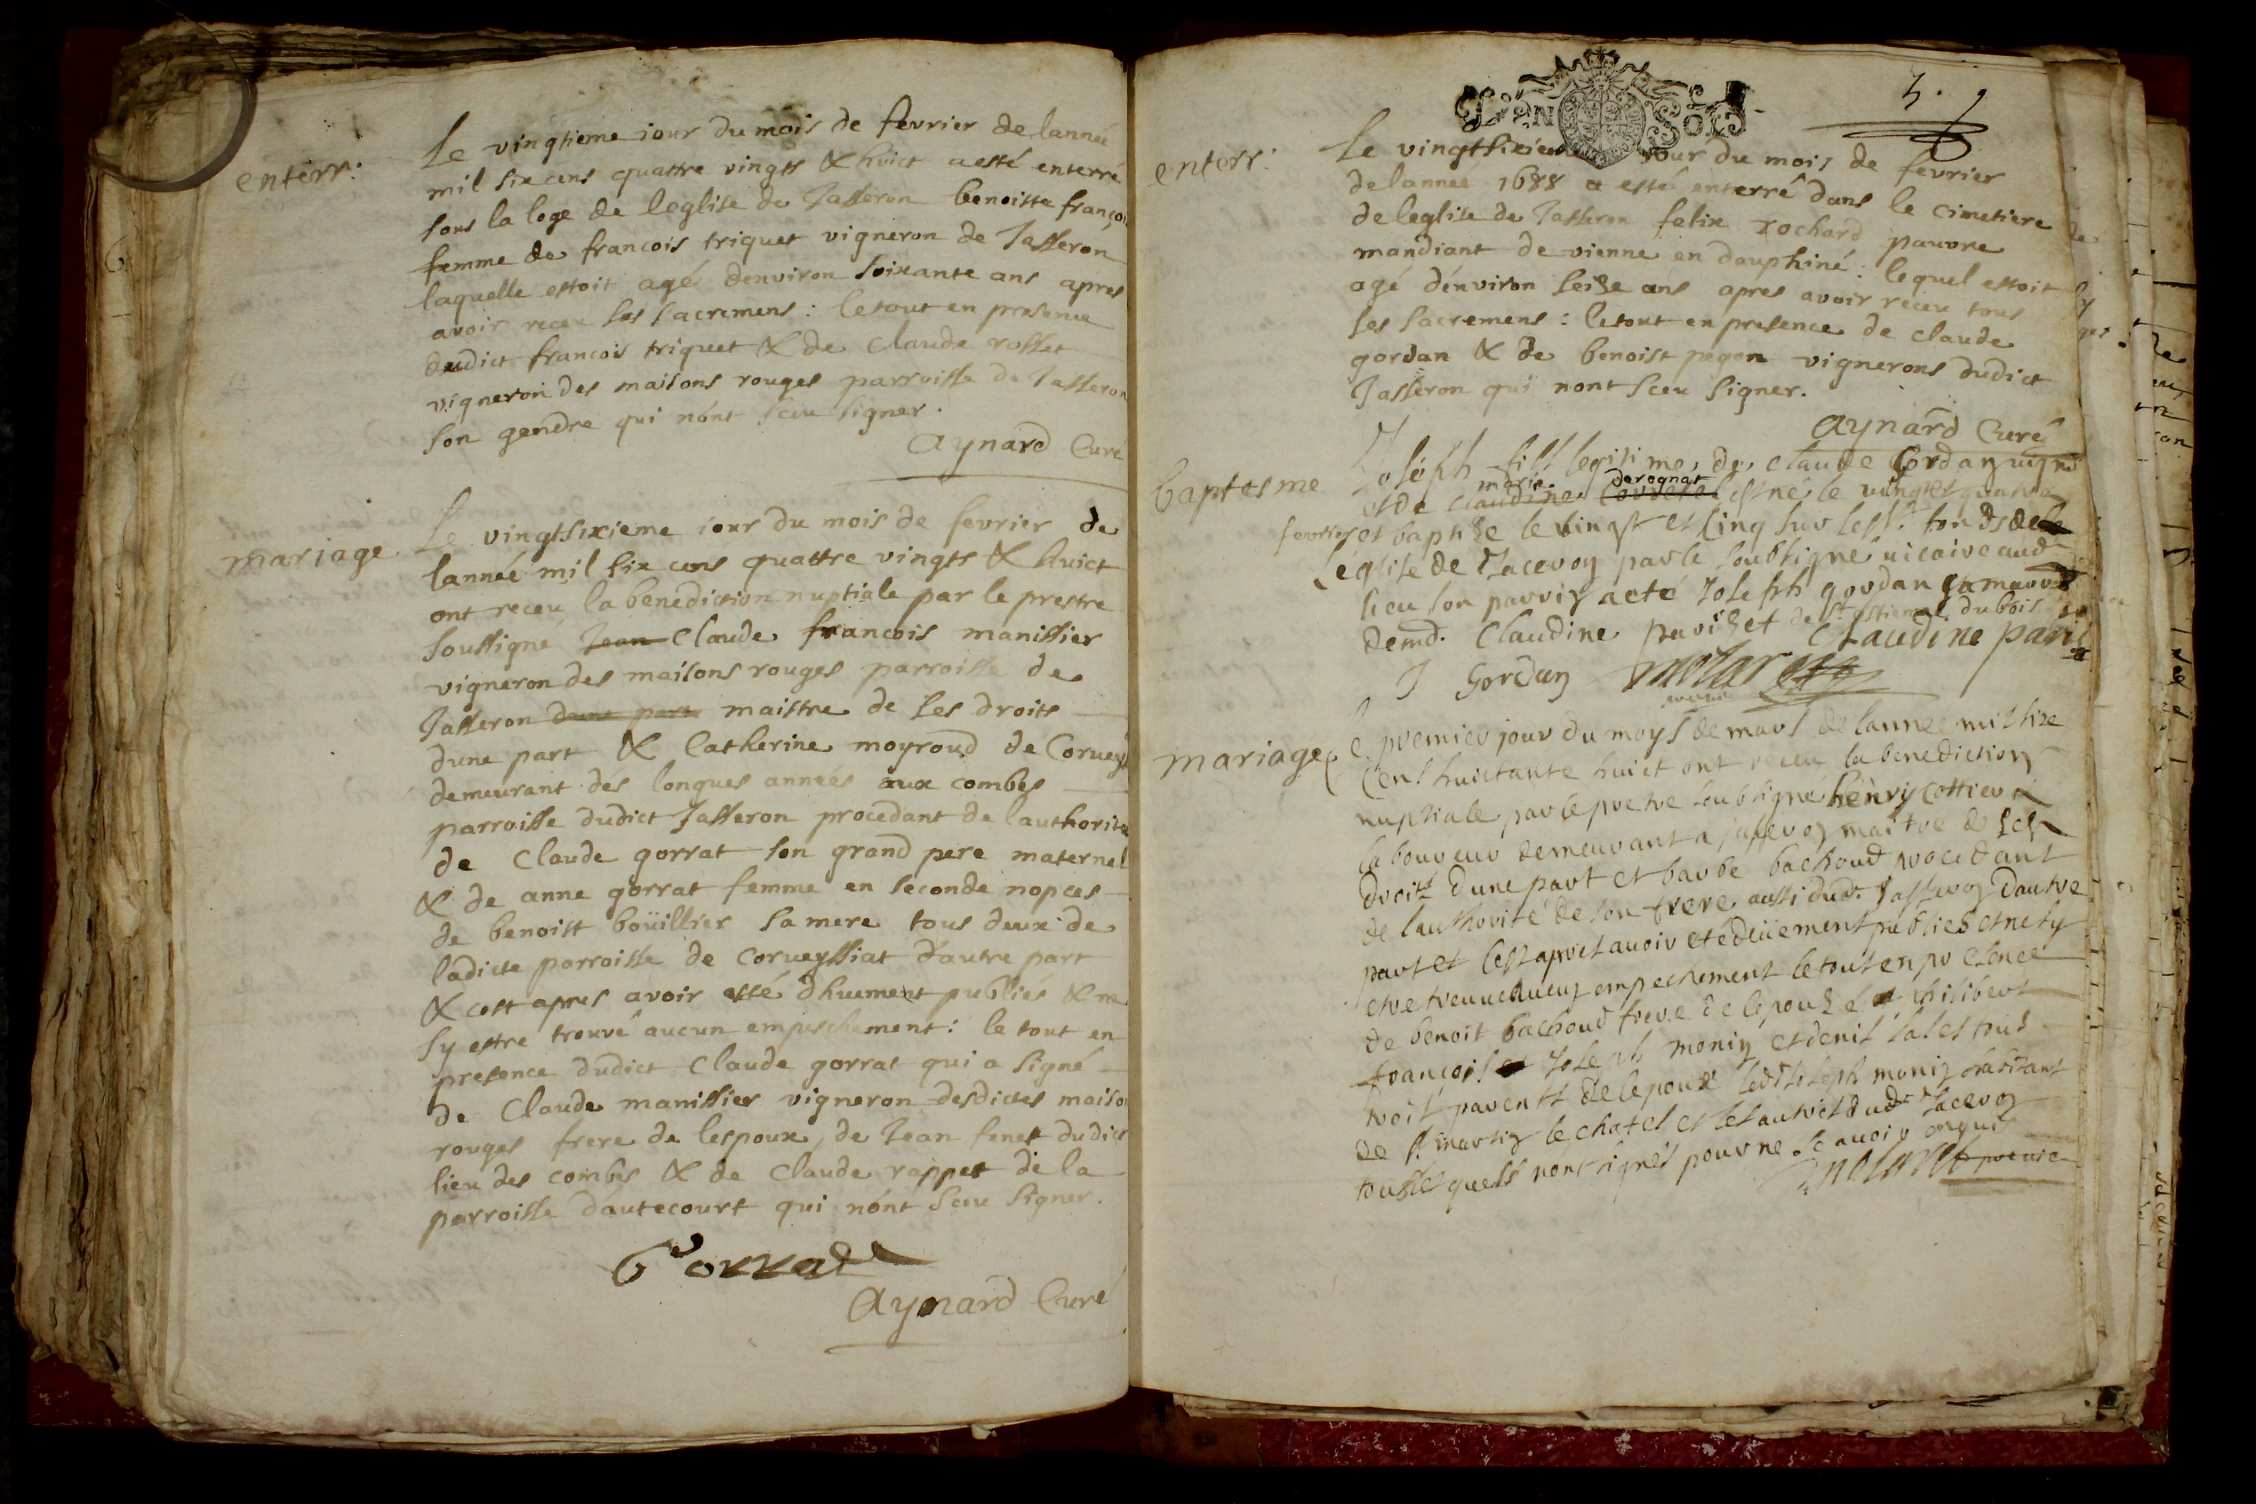 enterr:
Le vingtieme iour du mois de fevrier de lanneé
mil six cens quattre vingts & huict a esté enterré
sous la loge de leglise de Jasseron benoiste françoi
femme de francois triquet vigneron de Jasseron
laquelle estoit agé denviron soixante ans apres
avoir receu les sacremens: le tout en presence
dudict francois triquet & de claude rosset
vigneron des maisons rouges parroisse de Jasseron
son gendre qui nónt sceu signer.
Aynard Curé
mariage
Le vingtsixieme iour du mois de fevrier de
lanneé mil six cens quattre vingts & huict
ont receu la benediction nuptiale par le prestre
soussigné Jean Claude francois manissier
vigneron des maisons rouges parroisse de
Jasseron dune part maistre de ses droits
dune part & Catherine moyroud de Corvey
demeurant des longues anneés aux combes
parroisse dudict Jasseron procedant de lauthorite
de Claude gorrat son grand pere maternel
& de anne gorrat femme en seconde nopces
de benoist boüillier sa mere tous deux de
ladicte parroisse de Corveyssiat dautre part
& cest apres avoir esté dhuement publiés & ne
sy estre trouvé aucun empeschement: le tout en
presence dudict Claude gorrat qui a signé
de Claude manissier vigneron desdictes maiso
rouges frere de lespoux, de Jean fenet dudict
lieu des combes & de Claude rappet de la
parroisse dáutecourt qui nónt sceu signer.
Gorrat
Aynard Curé
5.
DEN SOLS
enterr:
Le vingtsixieme iour du mois de fevrier
de lanneé 1688 a esté enterré dans le cimetiere
de leglise de Jasseron felix rochard pauvre
mandiant de vienne en dauphiné: lequel estoit
agé dénviron seize ans apres avoir receu tous
les sacremens: le tout en presence de claude
gordan & de benoist pegon vignerons dudict
Jasseron qui nont sceu signer.
Aynard Curé
baptesme
Joseph fils legitime de claude Gordan vign
marie derognat
et de claudine est né le vingt et quatre
fevrier et baptize le vingt et cinq sur les st. fonds de
Léglise de Jaceron par le soubsigné vicaire aud
lieu son parrin a eté Joseph gordan sa marr
demd. Claudine pavizet de st. estienne dubois
Claudine pavi
J Gordan molaret
vicaire
mariage
le premier jour du moys de mars de lannee mil six
Cens huictante huict ont receu la benediction
nuptiale par le pretre soubsigné hènry Cottier
laboureur demeurant a jasseron maitre de ses
droits dune part et barbe bachoud procedant
de lauthorité de son frere aussi dud. Jasseron dautre
part et cest apres avoir eté deüement publiés et ne sy
etre treuvé aucun empechement le tout en presence
de benoit bachoud frere de lepouzé et philibert
francois et Joseph monin et denis sales tous
trois parents de lepoux ledt Joseph monin habitant
de st. martin le chatel et les autres dudt Jaceron
tous lesquels nont signés pour ne scavoir enquis
molaret pretre